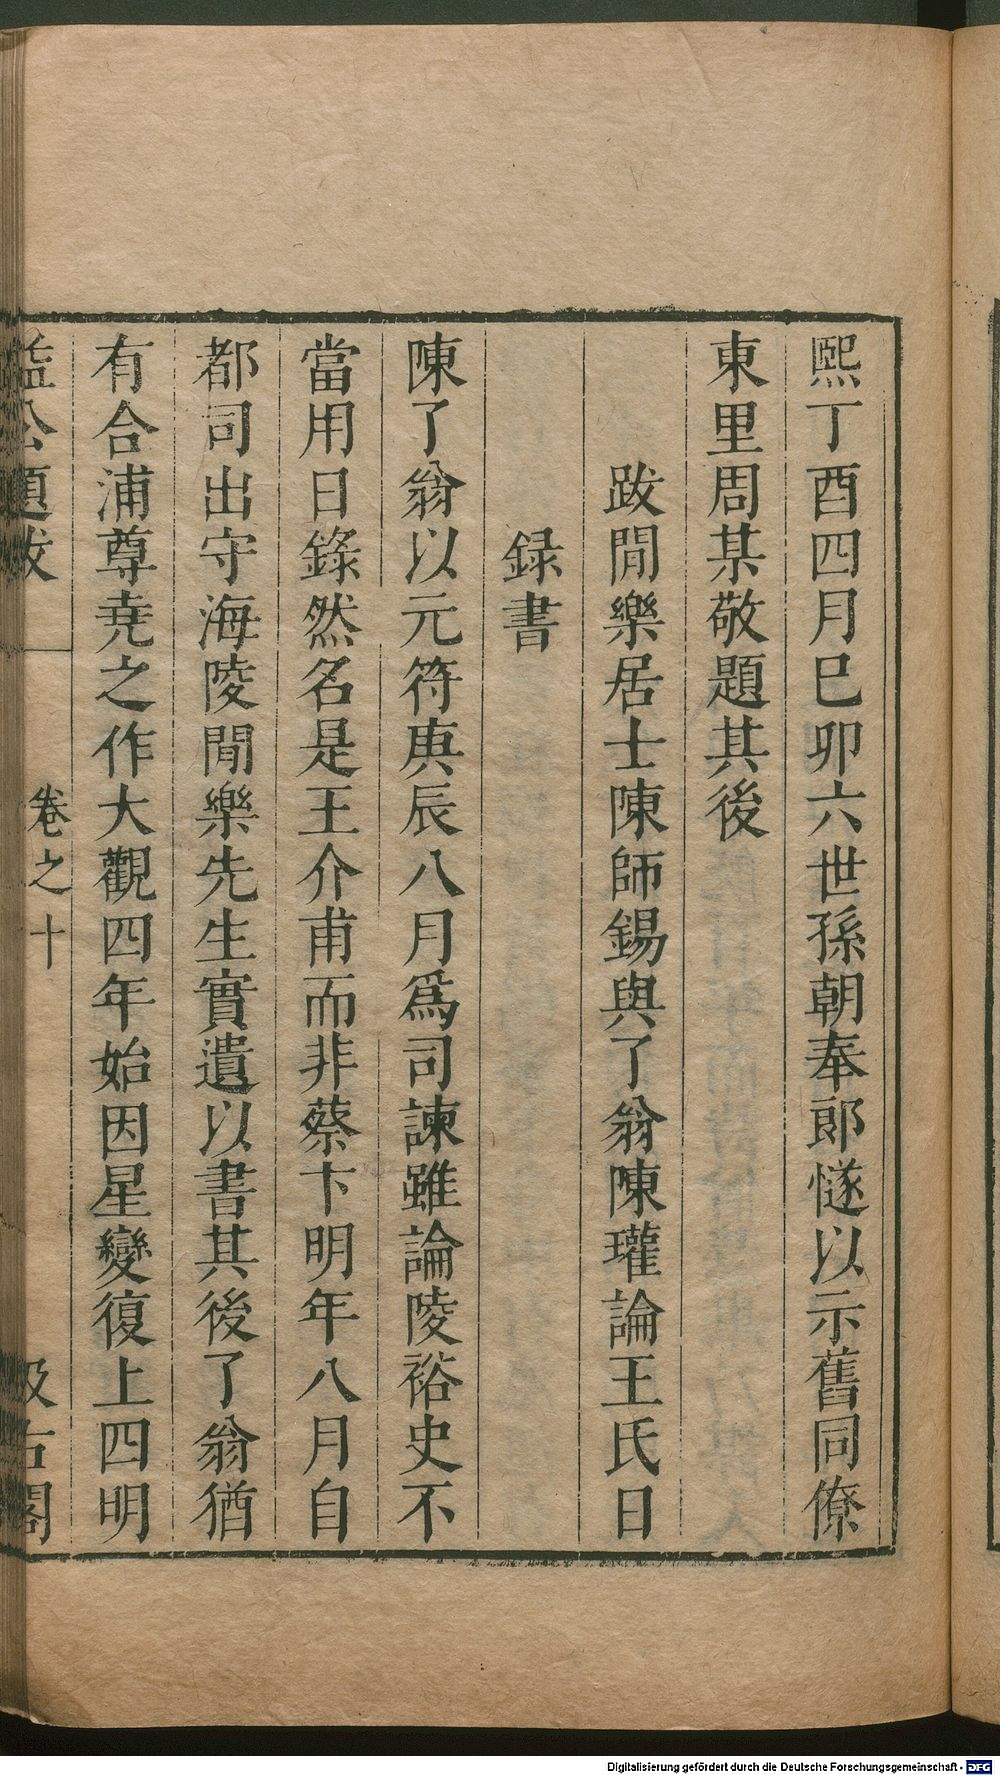 熙丁酉四月巳卯六世孫朝奉郎㷭以示舊同僚
東里周某敬題其後
跋閒樂居士陳師錫與了翁陳瓘論王氏日
録書
陳了翁以元符庚辰八月爲司諫雖論陵裕史不
當用日錄然名是王介甫而非蔡卞明年八月自
都司出守海陵閒樂先生實遺以書其後了翁猶
有合浦尊堯之作大觀四年始因星變復上四明
益公題跋
卷之十
汲古閣
Digitalisierung gefördert durch die Deutsche Forschungsgemeinschaft - DFG